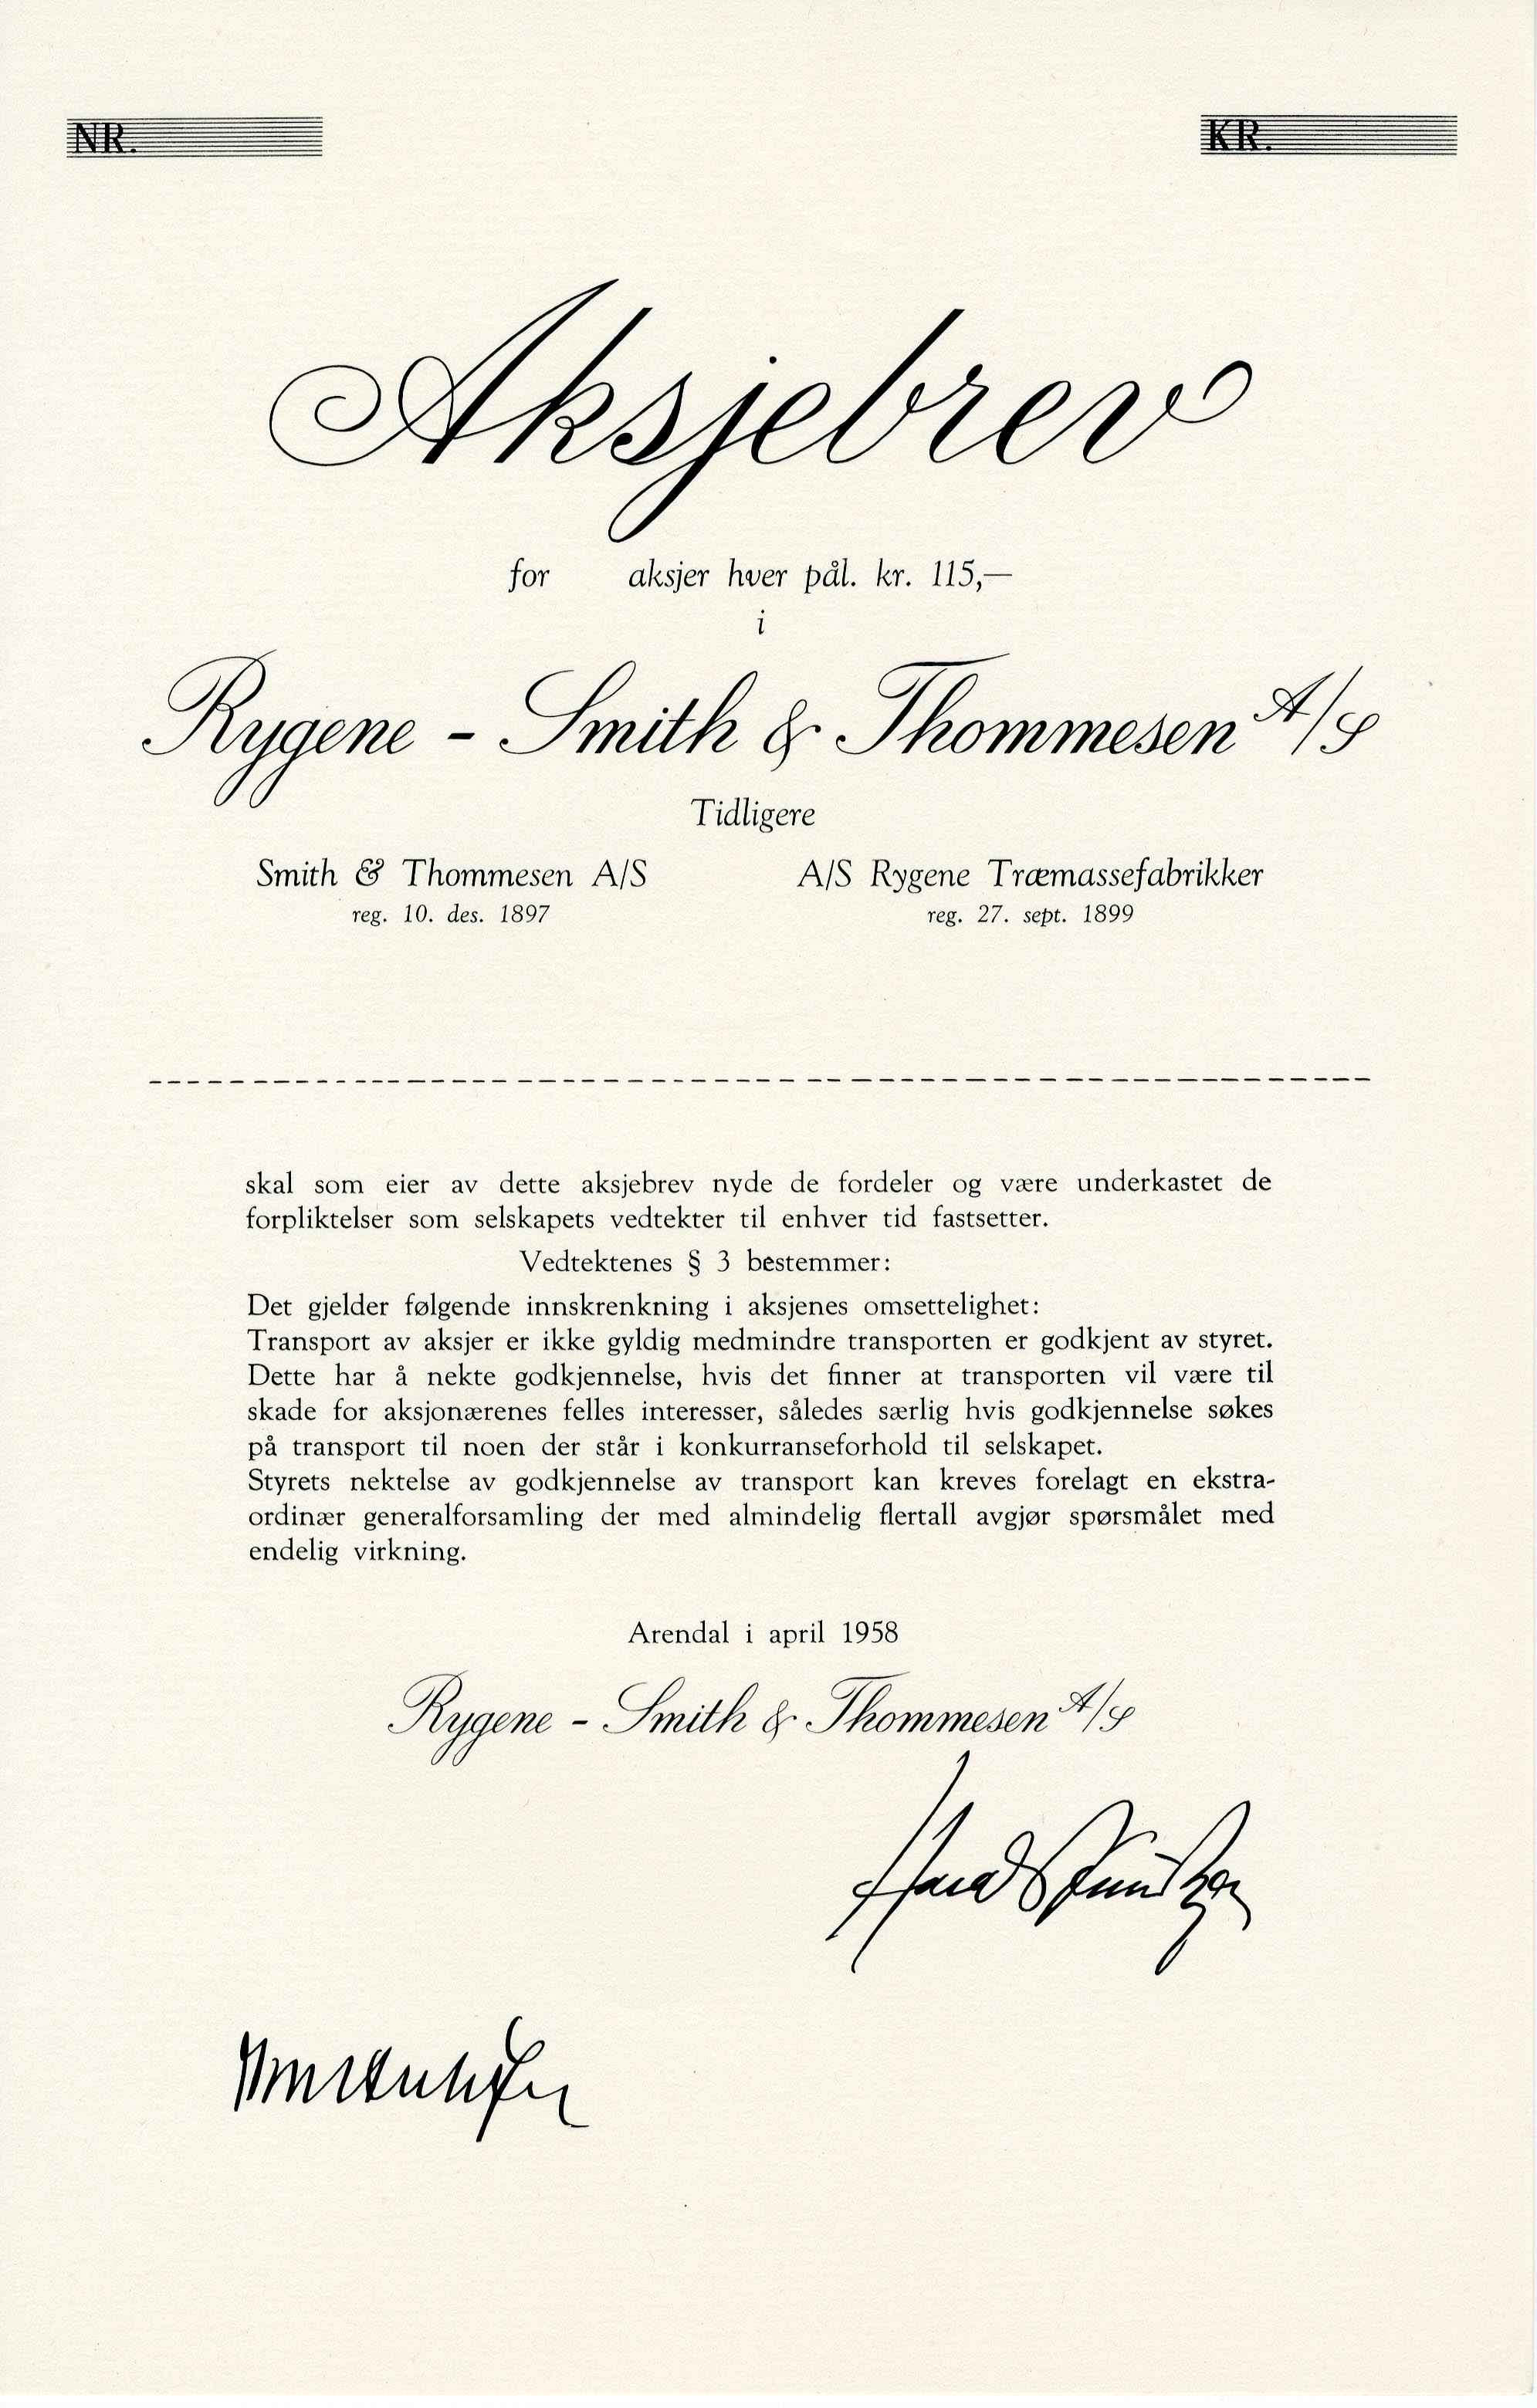 NR.
KR.
Aksjebrev
for aksjer hver pål. kr. 115,—
i
Rygene - Smith & Thommesen A/S
Tidligere
Smith & Thommesen A/S
A/S Rygene Træmassefabrikker
reg. 10. des. 1897
reg. 27. sept. 1899
skal som eier av dette aksjebrev nyde de fordeler og være underkastet de
forpliktelser som selskapets vedtekter til enhver tid fastsetter.
Vedtektenes § 3 bestemmer:
Det gjelder følgende innskrenkning i aksjenes omsettelighet:
Transport av aksjer er ikke gyldig medmindre transporten er godkjent av styret.
Dette har å nekte godkjennelse, hvis det finner at transporten vil være til
skade for aksjonærenes felles interesser, således særlig hvis godkjennelse søkes
på transport til noen der står i konkurranseforhold til selskapet.
Styrets nektelse av godkjennelse av transport kan kreves forelagt en ekstra-
ordinær generalforsamling der med almindelig flertall avgjør spørsmålet med
endelig virkning.
Arendal i april 1958
Rygene - Smith & Thommesen A/S